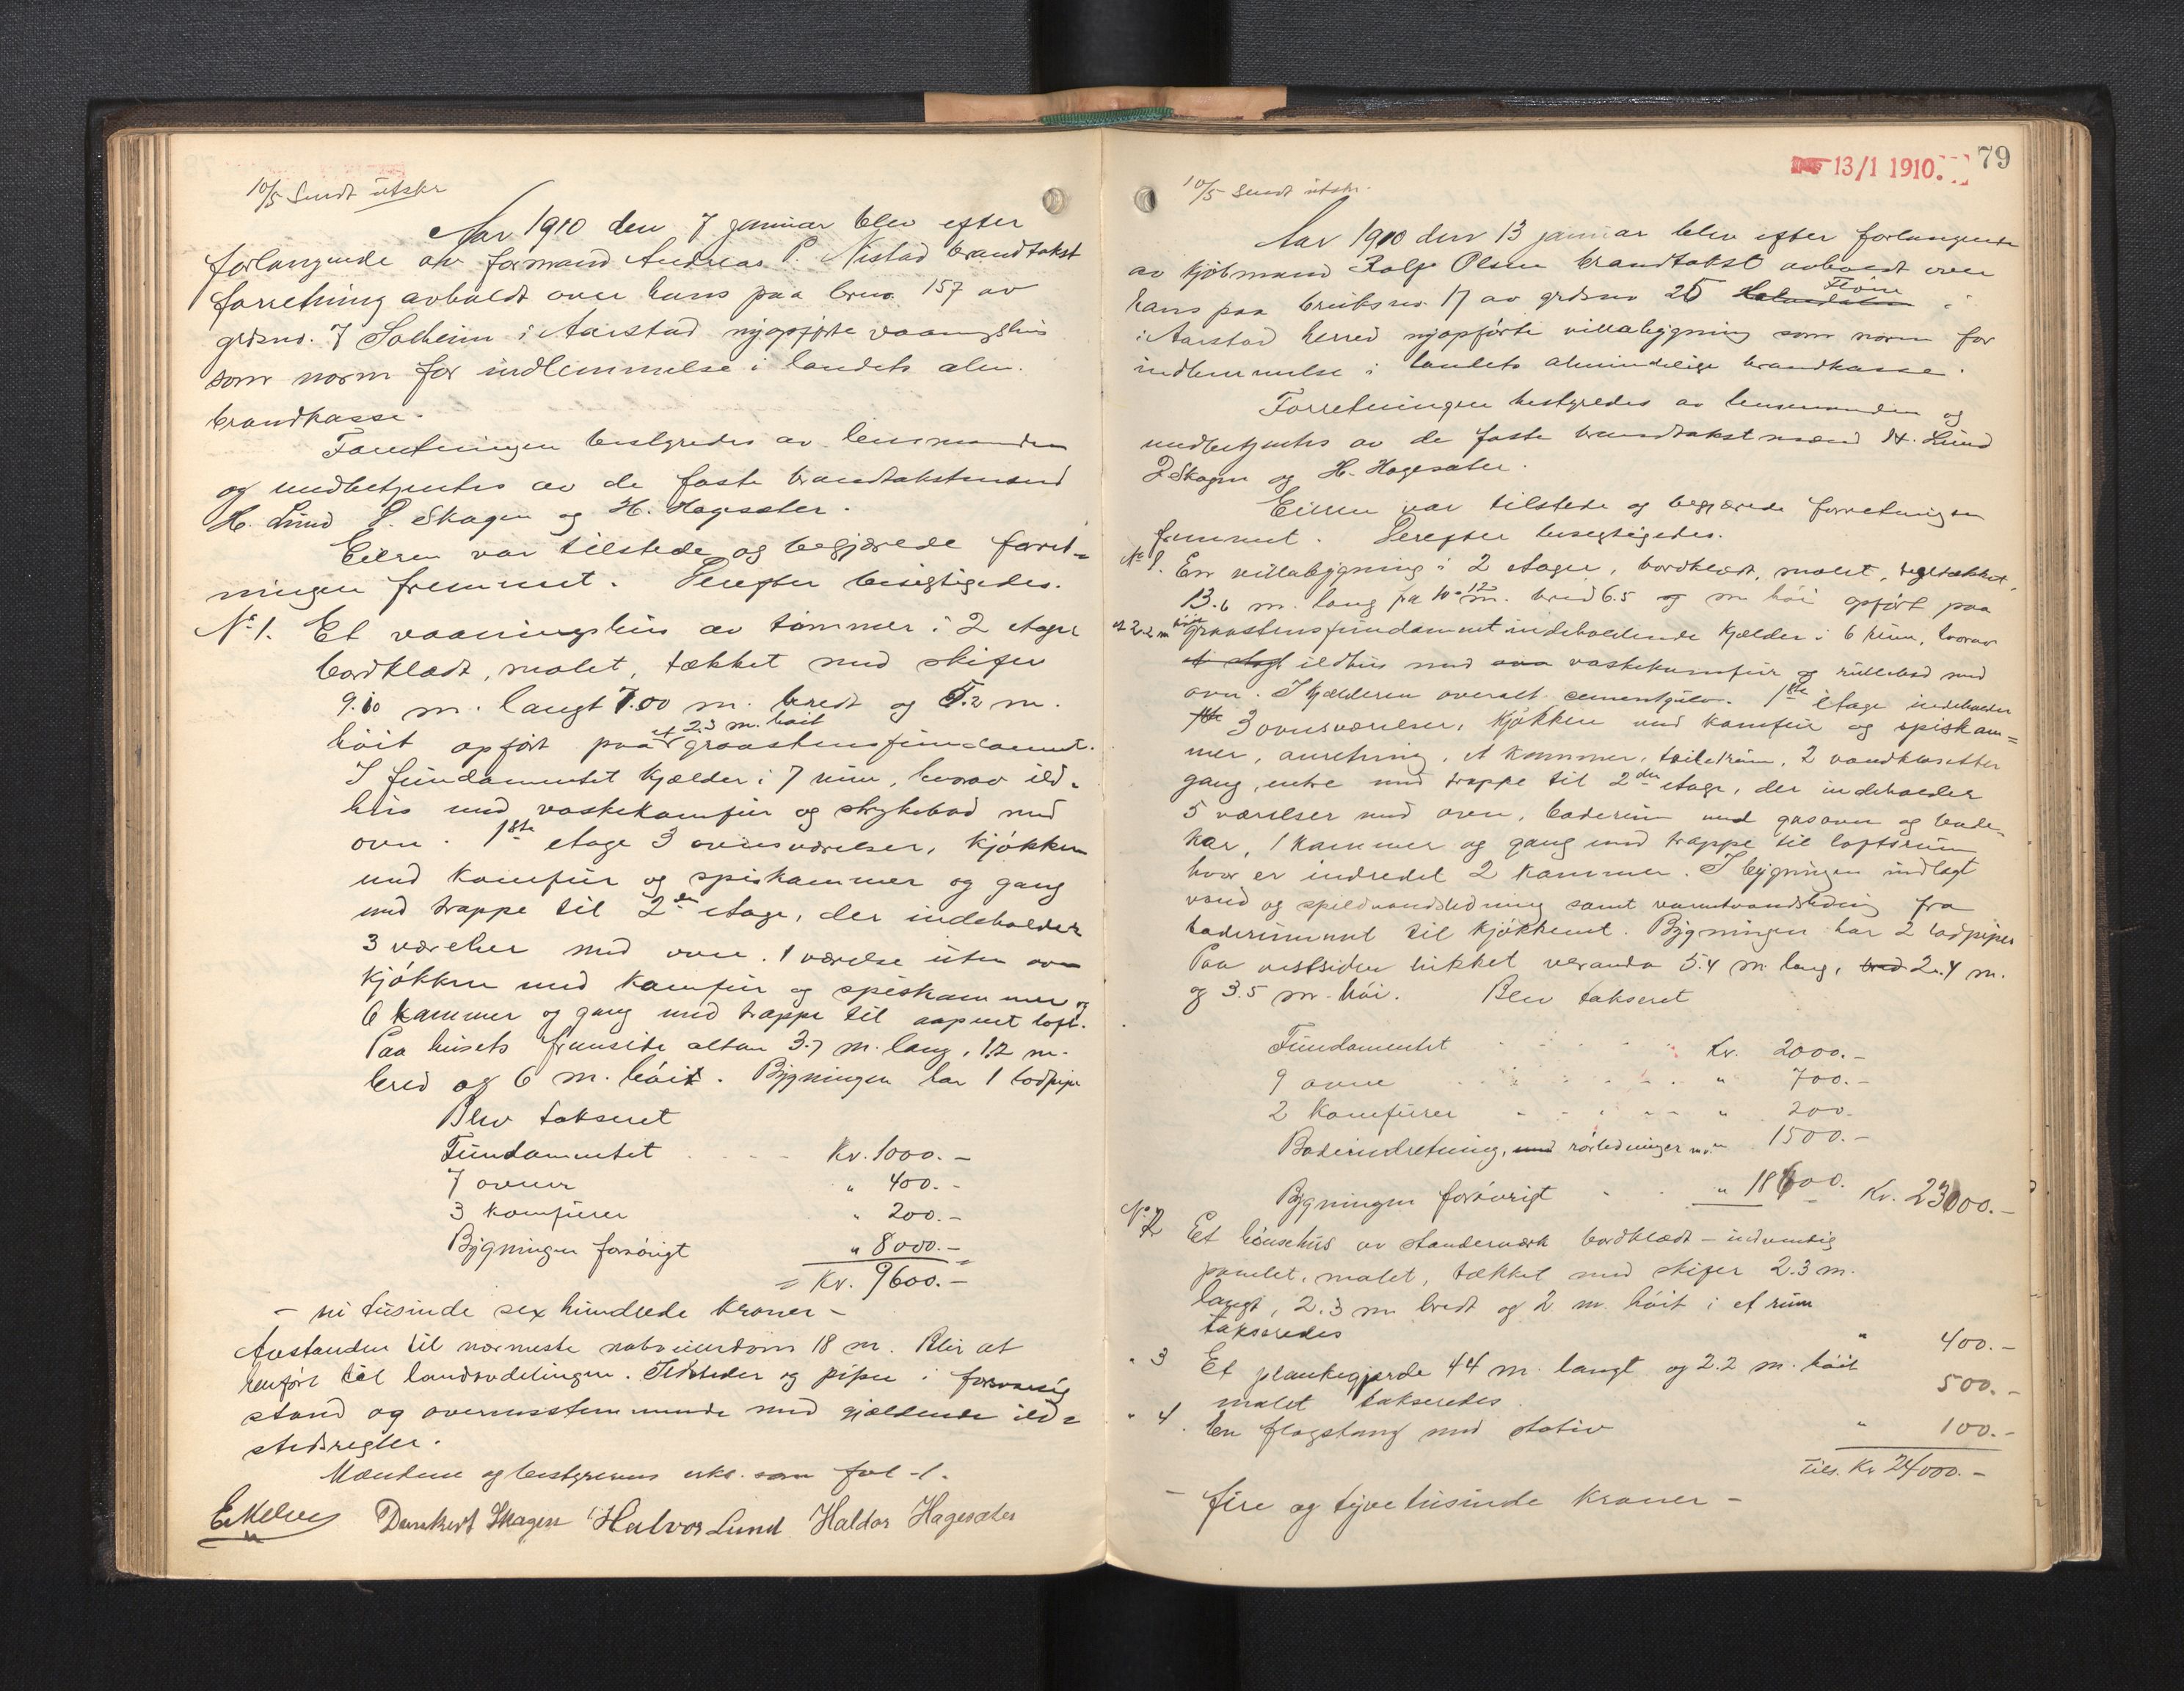 10/5 Sendt utskr
Aar 1910 den 7 januar blev efter
forlangende av formand Andreas P. Nistad brandtakst
forretning avholdt over hans paa brno. 157 av
grdsno. 7 Solheim i Aarstad nyopførte vaaningshus
som norm for indlemmelse i landets alm.
brandkasse.
Forretningen bestyredes av lensmanden
og medbetjentes av de faste brandtakstmænd
H. Lund D. Skagen og H. Hagesæter.
Eieren var tilstede og begjærede forret=
ningen fremmet. Derefter besigtigedes.
No 1. Et vaaningshus av tømmer i 2 etager
bordklædt, malet, tækket med skifer
9.10 m. langt 7.00 m. bredt og 5.2 m.
høit opført paa et 2.3 m. høit graastensfundament.
I fundamentet kjælder i 7 rum, hvorav ild-
hus med vaskekomfur og strykebod med
ovn. 1ste etage 3 ovnsværelser, kjøkken
med komfur og spiskammer og gang
med trappe til 2den etage, der indeholder
3 værelser med ovn. 1 værelse uten ovn
kjøkken med komfur og spiskammer og
6 kammer og gang med trappe til aapent loft.
Paa husets framside altan 3.7 m. lang, 1.2 m.
bred og 6 m. høit. Bygningen har 1 lodpipe
Blev takseret
Fundamentet . . . . Kr. 1000.-
7 ovner " 400.-
3 komfurer " 200.-
Bygningen forøvrigt " 8000.-
= Kr. 9600.-
- ni tusinde sex hundrede kroner -
Avstanden til nærmeste naboeiendom 18 m. Blir at
henføre til landsavdelingen. Ildsteder og piper i forsvarlig
stand og overensstemmende med gjældende ild=
stedsregler.
Mændene og bestyrerens erkl. som fol. 1.
Dankert Skagen Halvor Lund Haldor Hagesæter
13/1 1910. 79
10/5 Sendt utskr.
Aar 1910 den 13 januar blev efter forlangende
av kjøbmand Rolf Olsen brandtakst avholdt over
hans paa bruksno. 17 av grdsno 25 Fløen i
i Aarstad herred nyopførte villabygning som norm for
indlemmelse i landets almindelige brandkasse.
Forretningen bestyredes av lensmanden og
medbetjentes av de faste brandtakstmænd H. Lund
D Skagen og H. Hagesæter.
Eieren var tilstede og begjærede forretningen
fremmet. Derefter besigtigedes.
No 1. En villabygning i 2 etager, bordklædt, malet, tegltækket,
13.6 m. lang fra 10-12 m. bred 6.5 og m høi opført paa
et 2.2 m høit graastensfundament indeholdende kjælder i 6 rum, hvorav
et slagt ildhus med ovn vaskekomfur og rullebod med
ovn. I kjælderen overalt cementgulv. 1ste etage indeholder
3 ovnsværelser, kjøkken med komfur og spiskam=
mer, anretning, et kammer, toiletrum, 2 vandklosetter
gang, entre med trappe til 2den etage, der indeholder
5 værelser med ovn, baderum med gasovn og bade-
kar, 1 kammer og gang med trappe til loftsrum
hvor er indredet 2 kammer. I bygningen indlagt
vand og spildvandsledning samt varmtvandsleding fra
baderummet til kjøkkenet. Bygningen har 2 lodpiper
Paa vestsiden lukket veranda 5.4 m. lang, bred 2.4 m.
og 3.5 m. høi. Blev takseret
Fundamentet . . . . Kr. 2000.-
9 ovne . . . . " 700.-
2 Komfurer . . . . " 200.-
Badeindretning, med rørledninger m.v. " 1500.-
Bygningen forøvrigt . . " 18600. Kr. 23000.-
No 2 Et hønsehus av standerværk bordklædt - indvendig
panelet, malet, tækket med skifer 2.3 m.
langt, 2.3 m bredt og 2 m. høit i et rum
takseredes " 400.-
" 3 Et plankegjærde 44 m. langt og 2.2 m. høit
malet takseredes 500.-
" 4. En flagstang med stativ " 100.-
Tils. Kr 24000.-
- fire og tyve tusinde kroner -